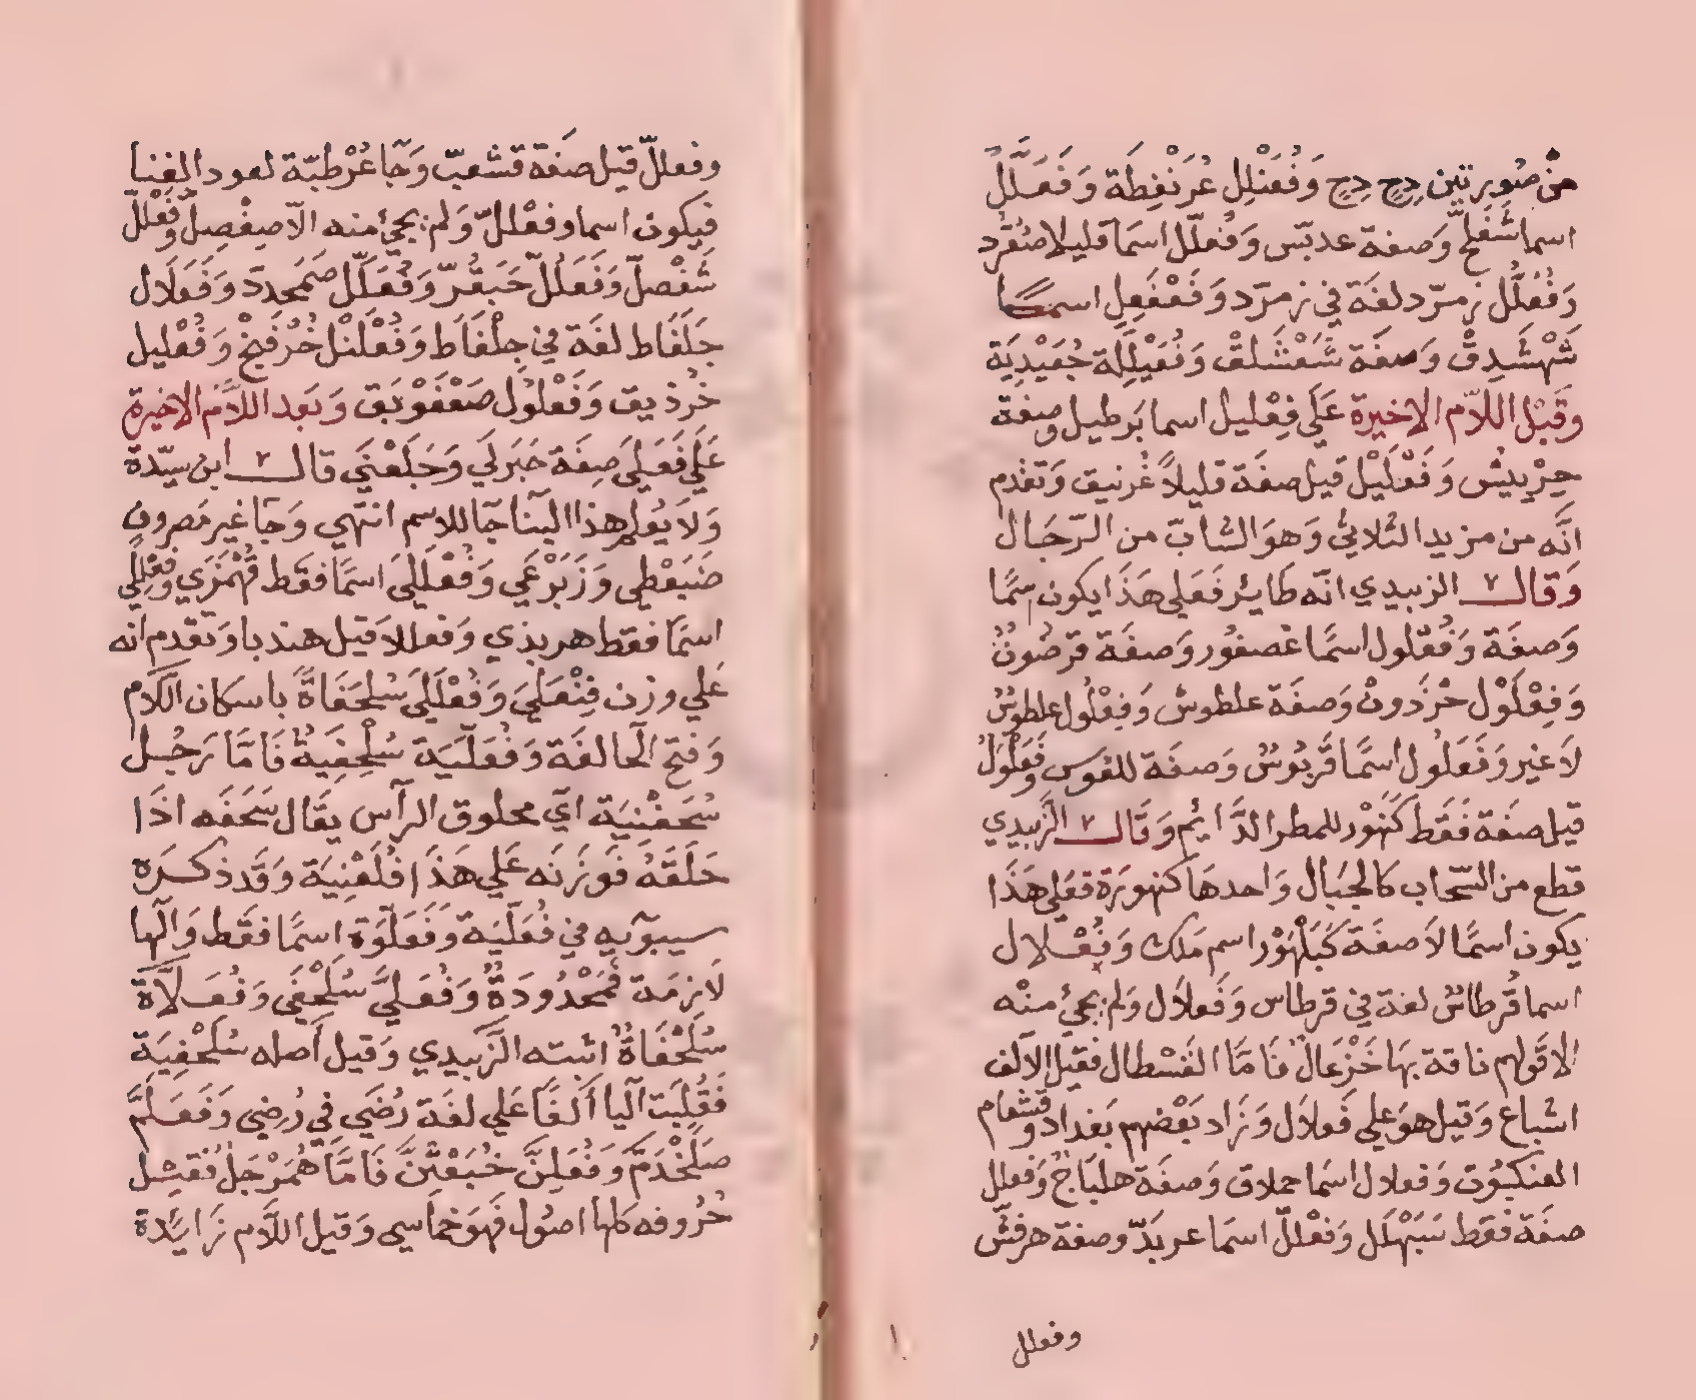 من صورتين دِحٍ دِحٍ وَفُعَنْلِل عُرَنْغِطَة وَفَعَلَّلُ
اسما شَفَلّح وَصفة عدبّس وَفُعلّل اسمَا قليلا صُعُرّد
وَفُعُلُّل زمرّد لغَة في زمرّد وَفَعْفَعِل اسمًا
شَهْشَدِقْ وَصفَة شَعْشَلقْ وَفُعَيْلِلَة جُعَيْدِبَة
وَقَبْل اللاّم الاخيرة عَلَي فِعْليل اسما بَرطيل وصفة
حِرْبِيْش وَفَعّلَيْل قيل صفَة قليلاً غُرنيق وَتقدم
انَّه من مزيد الثلاثي وَهوَ الشابّ من الرّجَال
وَقال الزبيدي انّه طَائر فَعَلي هَذَا يكون سمًا
وَصفَة وَفُعْلول اسمًا عُصفُور وَصفَة قرضُوبٌ
وَفِعْلَوْل حْرْذَونْ وَصفَة علطوسٌ وَفِعْلُول علطوسٌ
لاَ غير وَفَعَلُول اسمًا قَرَبُوسٌ وَصفَة للقوس وفَعَلْوَلُ
قيل صفَة فَقَط كَنَهْوَر للمطر الدَّائم وَقَال الزَّبيدي
قطع من السّحاب كالجبَال وَاحدهَا كنهورَة فعَلي هَذَا
يكون اسمًا لاَ صفَة كَبَلْهَوْر اسم مَلك وَفُعْلال
اسما قُرطاسٌ لغة في قرطاس وَفَعلاَل وَلم يجئ منْه
الا قَولهم ناقة بهَا خَزْعَالٌ فَامَّا القَسْطال فقيل الالف
اشباع وَقيل هوَ علي فَعلاَل وَزَاد بَعْضهم بَغداد وقشعام
العنكبُوت وَفعلال اسمَا حملاق وَصفَة هلبَاجٌ وَفعلل
صفَة فقَط سَبَهْلَل وَفعْللّ اسمَا عربَدّ وصفة هرفشّ
وفعلل
وفعللّ قيل صفَة قشعبّ وَجَا عُرْطبّة لعود الغنا
فيكون اسما وفعْللّ وَلم يجئ منه الاّ صفْصِلّ وفَعْللّ
شَفْصلّ وَفَعَلُلّ حَبَقُرّ وَفُعَلّل صمَحدد وَفَعَلاَل
جَلَفَاط لغَة في جِلْفَاط وَفُعْلَنْل خُرْفَنْج وَفُعْليل
خُرذيق وَفَعْلُول صَعْفَوْبَق وَبَعد اللاَّم الاخيرة
عَلَي فَعَلَي صِفَة حَبَركي وَجَلَعْبَي قال ابن سيّدة
وَلاَ يُولهذا البنا جَا للاسم انتهي وَجَا غير مَصروف
ضَبَغْطي وَزَبَرْعَي وَفُعْلَلي اسمًا فقَط قُهْمَزَي وَفِعْلِلي
اسمَا فقَط هربذي وَفعلالا قيل هندبا وَتقَدم انه
عَلي وزن فِنْعَلي وَفُعْلَلي سُلحَفَاةً باسكان اللاّم
وَفتح الحا لغَة وَفُعَلّيَة سُلْحِفِيَةٌ فَامَّا رَجُل
سُحَفْنيَة اي محلوق الراس يقَال سَحَفَه اذَا
حَلَقَهُ فَوَزَنَه عَلي هَذَا فُلَعْنِيَة وَقَد ذكرَه
سيبوَيه في فُعَلّيَة وَفَعَلّوَة اسمًا فقَط وَالها
لاَزمَة قَمَحْدُودَةٌ وَفُعَليّ سُلَحْفَي وَفُعَلاَّةَ
سُلَحْفَاةٌ اثبته الزَّبيدي وَقيل أَصله سُلَحْفِيَة
فَقُلِبَت اليا ألفًا عَلي لغَة رُضَي في رُضِي وَفَعَلَّمّ
صَلَخْدَمّ وَفُعَلِنّ خُبَعْثِنٌ فَامَّا هُمَرْجَلٌ فقيل
حُرُوفه كلها اصُول فهوَ خماسي وَقيل اللاَّم زَائدة